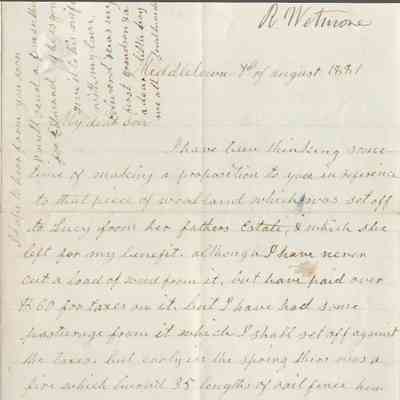 R. Wetmore
Middletown 7th of august 1881
My dear son
I have been thinking some
time of making a proposition to you in reference
to that piece of wood land which was set off
to Lucy from her fathers Estate, & which she
left for my benefit. although I have never
cut a load of wood from it, but have paid over
$60 for taxes on it. but I have had some
pasturage from it which I shall set off against
the taxes. but early in the spring there was a
fire which burn'd 35 lengths of rail fence
I hope to hear from you soon
I will send a
for Edward
to his wife
with my love
Edward was my
first grandson &
a dear little boy
we all